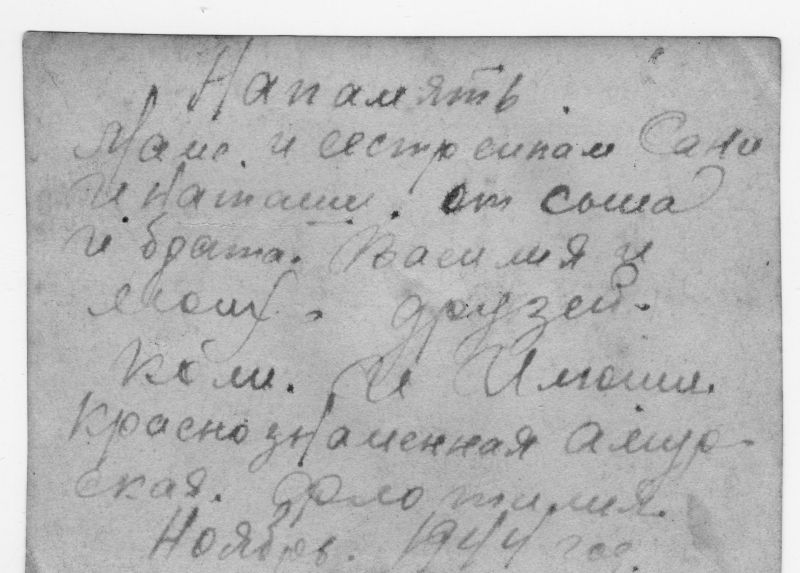 На память.
Маме и сестренкам Сани
и Наташи. от сына
и брата. Василия и
друзей.
Коли. и Илюши.
Краснознаменная Амур-
ская. Флотилия.
Ноябрь. 1944 год